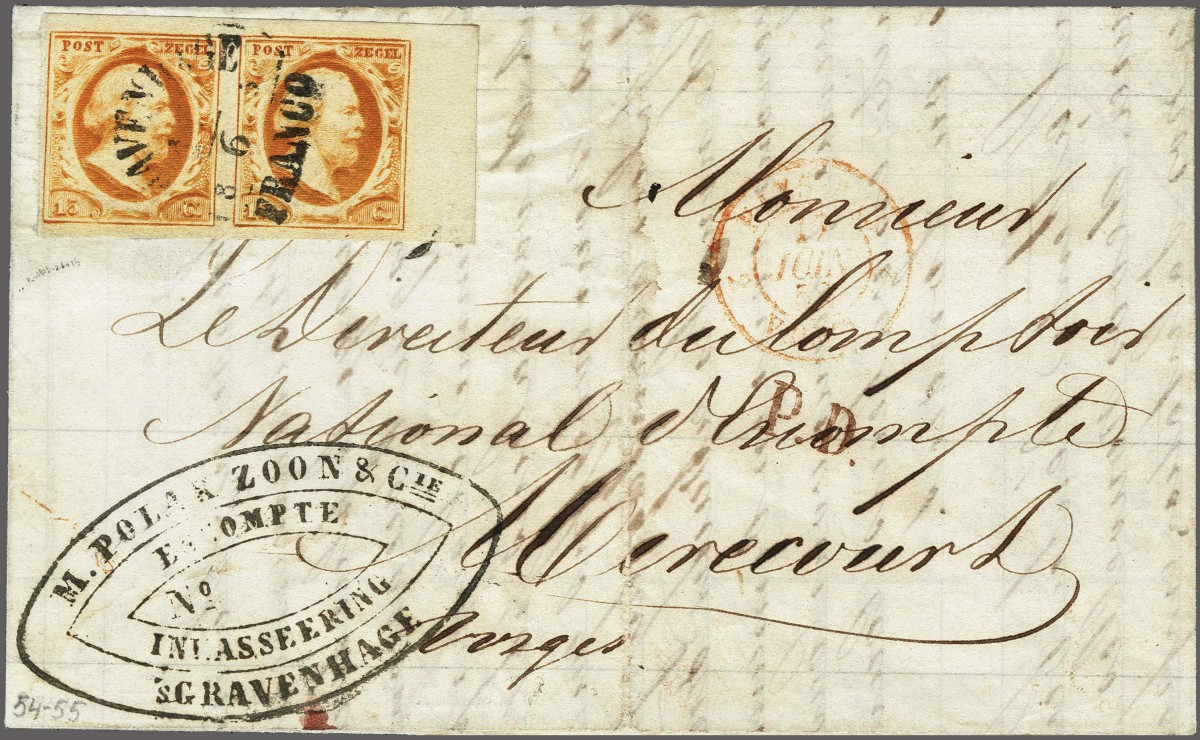 POST ZEGEL POST ZEGEL
FRANCO
15 C
Monsieur
Le Directeur du Comptoir
National d'Escompte
P.D.
Mirecourt
Vosges
JUIN
M. POLAK ZOON & CIE
ESCOMPTE
No
INCASSEERING
sGRAVENHAGE
54-55